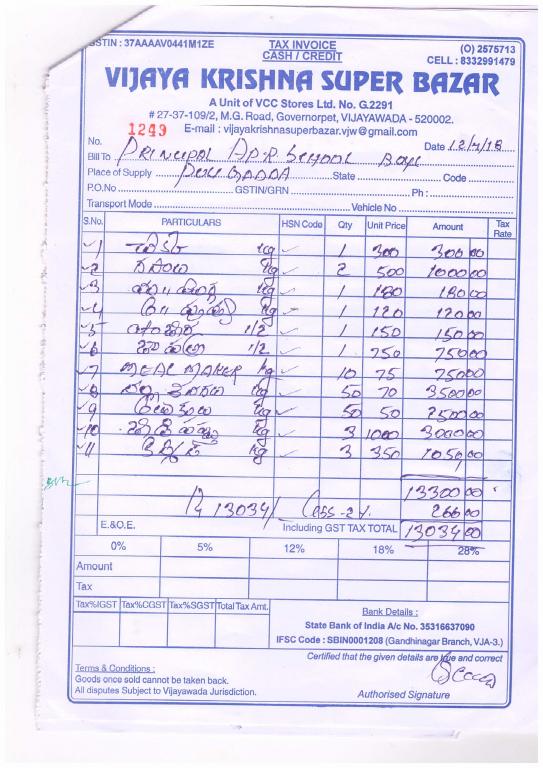 GSTIN : 37AAAAV0441M1ZE TAX INVOICE (O) 2575713
CASH / CREDIT CELL : 8332991479
VIJAYA KRISHNA SUPER BAZAR
A Unit of VCC Stores Ltd. No. G.2291
# 27-37-109/2, M.G. Road, Governorpet, VIJAYAWADA - 520002.
E-mail : vijayakrishnasuperbazar.vjw@gmail.com
No. 1249 Date 12/7/18
Bill To PRINCIPAL AP.R SCHOOL Boys
Place of Supply PULIGADDA State Code
P.O.No GSTIN/GRN Ph :
Transport Mode Vehicle No
S.No. PARTICULARS HSN Code Qty Unit Price Amount Tax Rate
1 kg 1 300 300 00
2 kg 2 500 1000 00
3 kg 1 180 180 00
4 kg 1 120 120 00
5 1/2 1 150 150 00
6 1/2 1 750 750 00
7 MEAL MAKER kg 10 75 750 00
8 kg 50 70 3500 00
9 kg 50 50 2500 00
10 kg 3 1000 3000 00
11 kg 3 350 1050
13300 00
13034/ Less-2% 266 00
E.&O.E. Including GST TAX TOTAL 13034 00
0% 5% 12% 18% 28%
Amount
Tax
Tax%IGST Tax%CGST Tax%SGST Total Tax Amt.
Bank Details :
State Bank of India A/c No. 35316637090
IFSC Code : SBIN0001208 (Gandhinagar Branch, VJA-3.)
Certified that the given details are true and correct
Terms & Conditions :
Goods once sold cannot be taken back.
All disputes Subject to Vijayawada Jurisdiction.
Authorised Signature